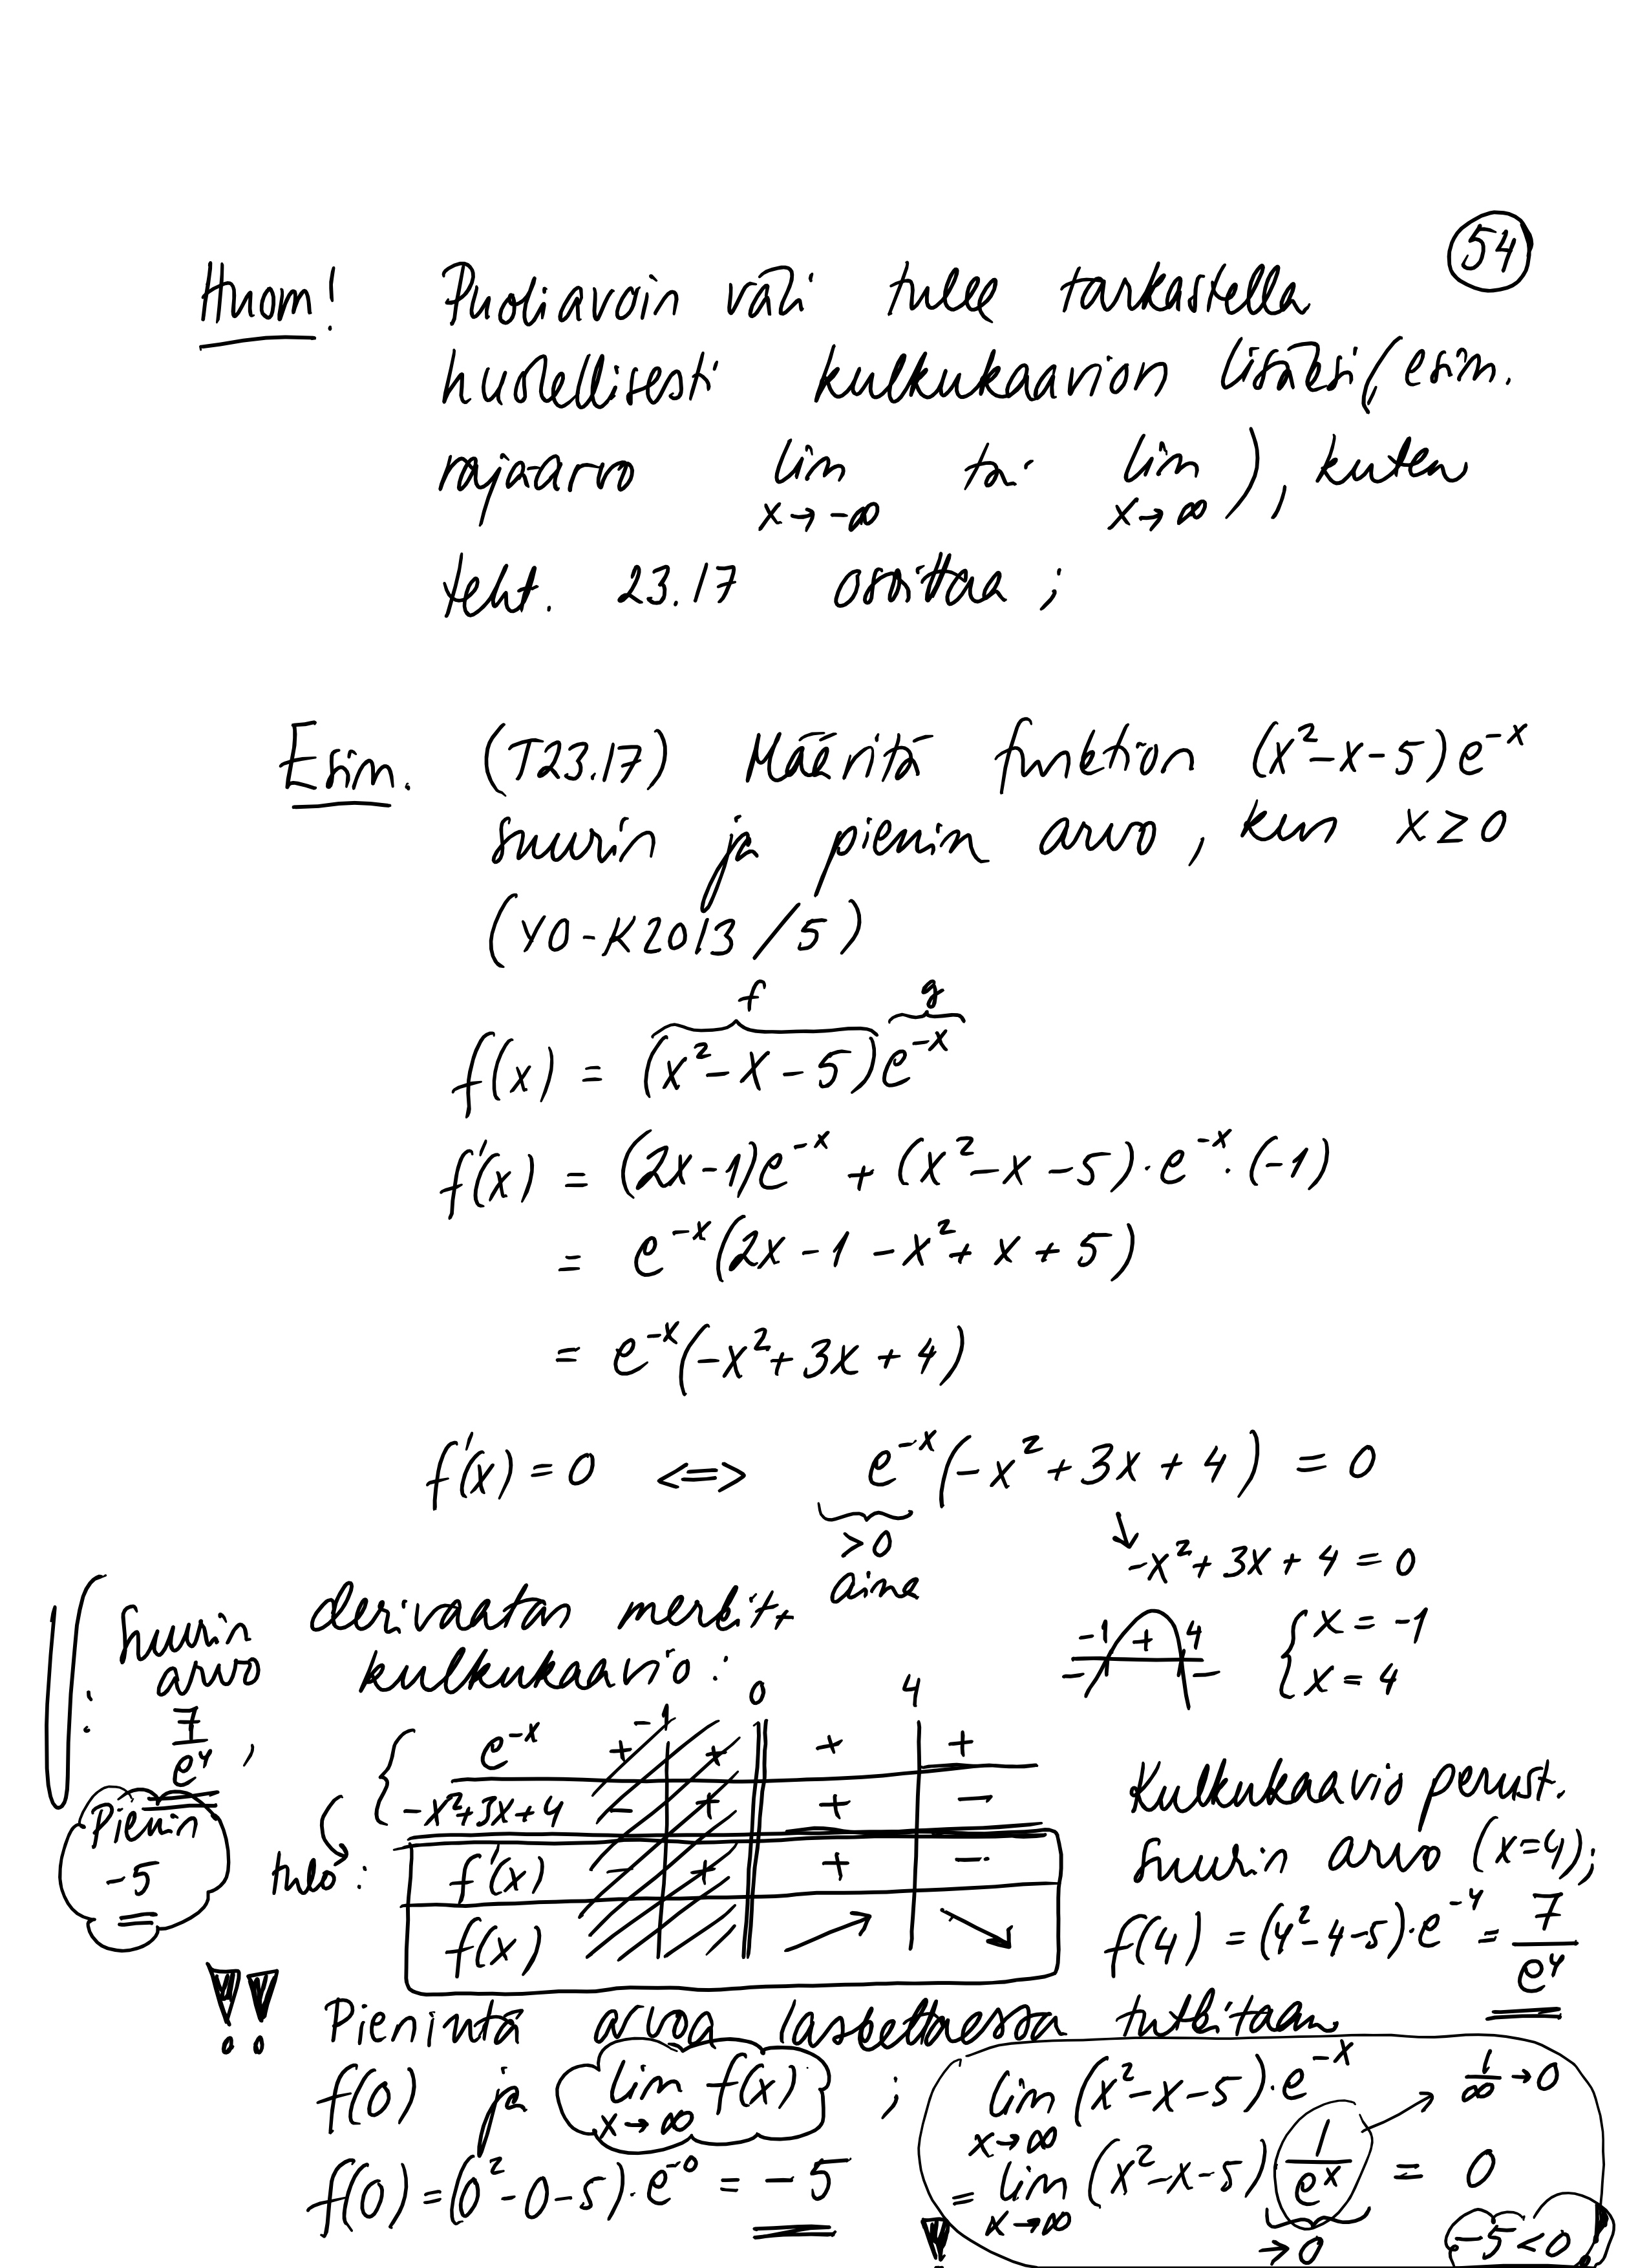 54
Huom! Puoliavoin väli tulee tarkastella
huolellisesti kulkukaavion lisäksi (esim.
raja-arvo lim x→-∞ tai lim x→∞), kuten
teht. 23.17 osoittaa ;
Esim. (T23.17) Määritä funktion (x²-x-5)e⁻ˣ
suurin ja pienin arvo, kun x≥0
(YO-K2013/5)
f g
f(x) = (x²-x-5)e⁻ˣ
f'(x) = (2x-1)e⁻ˣ + (x²-x-5)·e⁻ˣ·(-1)
= e⁻ˣ(2x-1-x²+x+5)
= e⁻ˣ(-x²+3x+4)
f'(x)=0 <=> e⁻ˣ(-x²+3x+4) = 0
>0
aina
↓ -x²+3x+4 = 0
-1 + 4
- -
{ x = -1
x = 4
Suurin
arvo
: 7/e⁴ ,
Pienin
-5
derivaatan merkit +
kulkukaavio :
-1 0 4
e⁻ˣ + + + +
-x²+3x+4 - + + -
tulo : f'(x) - + + -
f(x) ↗ ↘
Kulkukaavio perust.
suurin arvo (x=4);
f(4) = (4²-4-5)·e⁻⁴ = 7/e⁴
!! Pienintä arvoa laskettaessa tutkitaan
f(0) ja lim x→∞ f(x) ;
f(0) = (0²-0-5)·e⁻⁰ = -5
lim x→∞ (x²-x-5)·e⁻ˣ 1/∞ →0
= lim x→∞ (x²-x-5) 1/eˣ = 0
→0
! -5<0 !